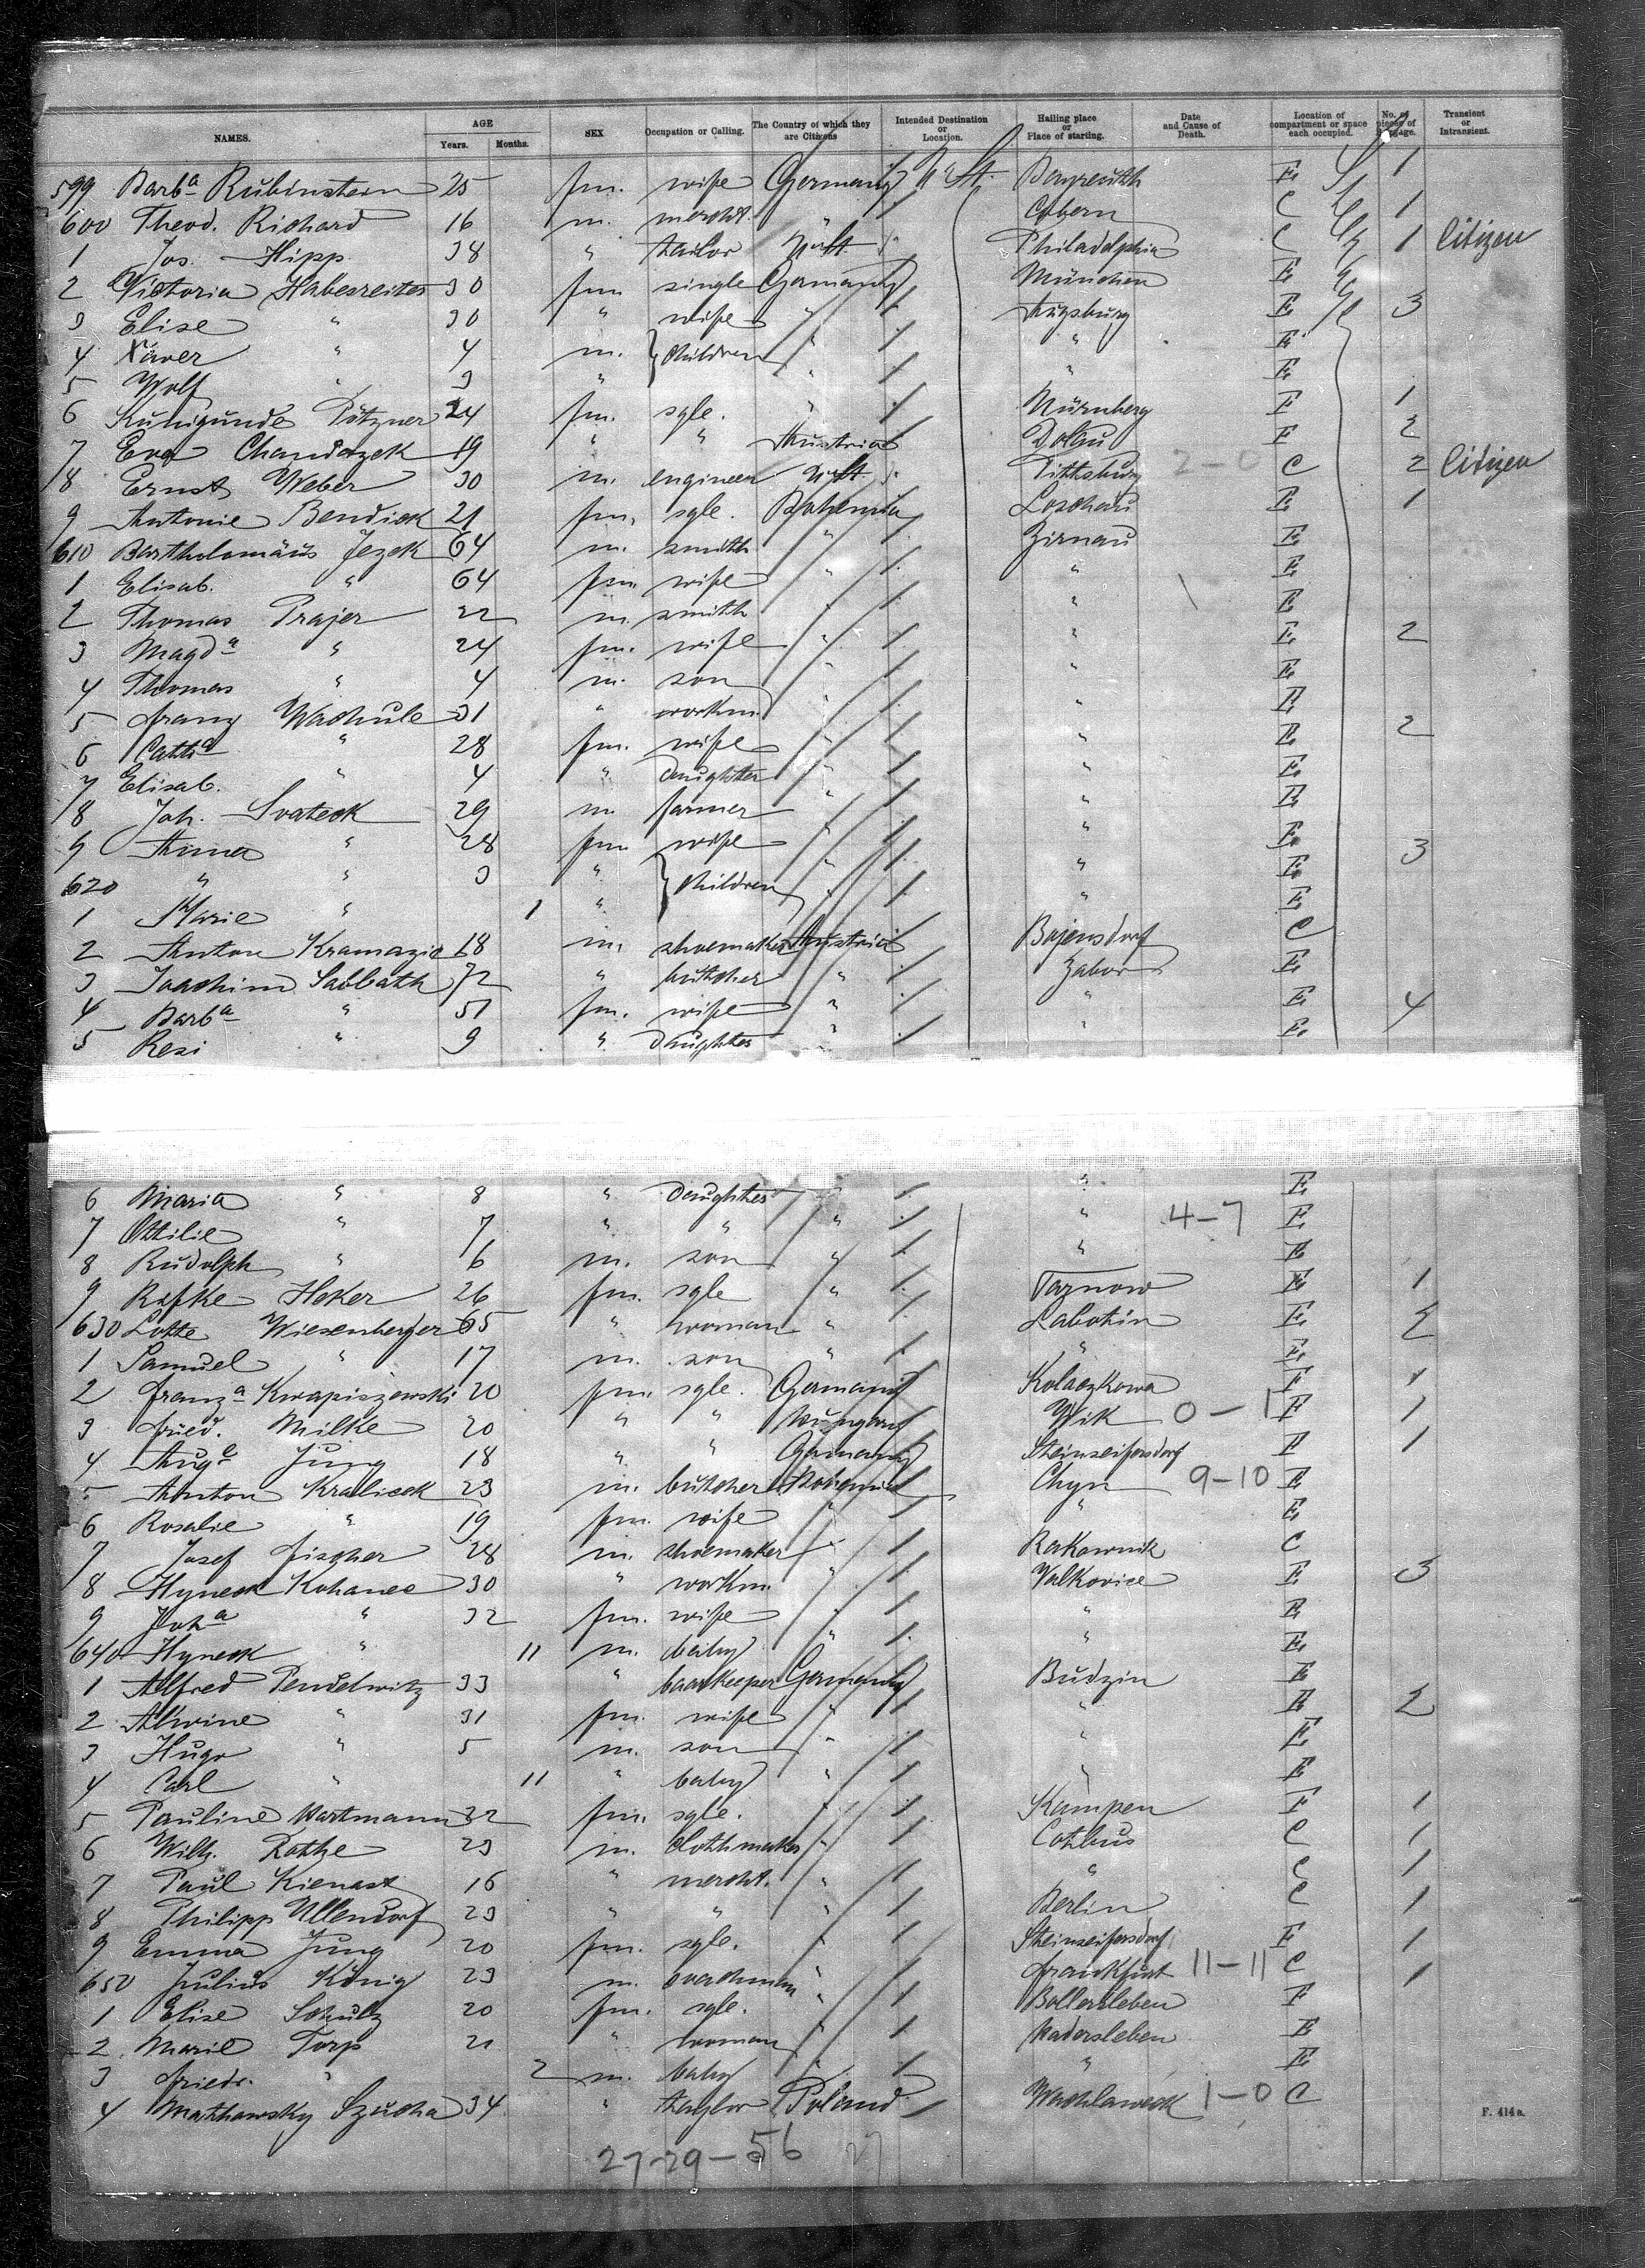 NAMES. AGE Years. Months. SEX Occupation or Calling. The Country of which they are Citizens Intended Destination or Location. Hailing place or Place of starting. Date and Cause of Death. Location of compartment or space each occupied. No. of pieces of Transient or Intransient.
599 Barbª Rubinstein 25 fm. wife Germany U. St. Bayreuth E 1
600 Theod. Richard 16 m. mercht. " Cobern C 1
1 Jos. Hipp 38 " tailor U. St. Philadelphia C 1 Citizen
2 Victoria Habesreiter 30 fm single Germany München E
3 Elise " 30 " wife " Augsburg E 3
4 Xaver " 4 m. children " " E
5 Wolf " 3 " " " E
6 Kunigunde Pötzner 24 fm. sgle. " Nürnberg F 1
7 Eva Chandazek 19 " " Austria Dolau F 2
8 Ernst Weber 30 m. engineer U. St. Pittsburg 2-0 C 2 Citizen
9 Antonie Bendick 21 fm. sgle. Bohemia Loschau E 1
610 Bartholomäus Jezek 64 m. smith " Zirnau E
1 Elisab. " 64 fm. wife " " E
2 Thomas Prajer 22 m. smith " " E
3 Magdª " 24 fm. wife " " E 2
4 Thomas " 4 m. son " " E
5 Franz Waschule 31 " workm. " " E
6 Cathª " 28 fm. wife " " E 2
7 Elisab. " 4 " daughter " " E
8 Joh. Svateck 29 m. farmer " " E
9 Anna " 28 fm wife " " E 3
620 " " 3 " children " " E
1 Marie " 1 " " " E
2 Anton Kramazie 18 m. shoemaker Austria Bojensdorf C
3 Joachim Sabbath 72 " butcher " Zabor E
4 Barbª " 51 fm. wife " " E 4
5 Resi " 9 " daughter " " E
6 Maria " 8 " daughter " " E
7 Ottilie " 7 " " " " 4-7 E
8 Rudolph " 6 m. son " " E
9 Refke Heker 26 fm. sgle " Tarnow E 1
630 Lotte Wiesenberger 65 " woman " Labotin E 2
1 Samuel " 17 m. son " " E
2 Franzª Kwapiszewski 20 fm. sgle. Germany Kolaczkowa F 1
3 Fried. Milke 20 " " Hungary Wik 0-1 F 1
4 Augᵉ Jung 18 " " Germany Steinseifersdorf F 1
5 Anton Kralicek 23 m. butcher Bohemia Chyn 9-10 E
6 Rosalie " 19 fm. wife " " E
7 Josef Fischer 28 m. shoemaker " Rakownik C
8 Hyneck Kohanec 30 " workm. " Valkovice E 3
9 Johª " 32 fm. wife " " E
640 Hyneck " 11 m. baby " " E
1 Alfred Pendelwitz 33 " baarkeeper Germany Budzin E
2 Alwine " 31 fm. wife " " E 2
3 Hugo " 5 m. son " " E
4 Carl " 11 " baby " " E
5 Pauline Hartmann 32 fm. sgle. " Kampen F 1
6 Wilh. Rothe 23 m. clothmaker " Cotbus C 1
7 Paul Kienast 16 " mercht. " " C 1
8 Philipp Ullendorf 23 " " " Berlin C 1
9 Emma Jung 20 fm. sgle. " Steinseifersdorf F 1
650 Julius König 23 m. " Frankfurt 11-11 C 1
1 Elise Schulz 20 fm. sgle. " Bollersleben F
2 Marie Torp 21 " woman " Hadersleben E
3 Friedr. " 2 m. baby " " E
4 Mathawsky Szucha 34 " taylor Poland Wachlaweck 1-0 C
F. 414 a.
27-29-56 27